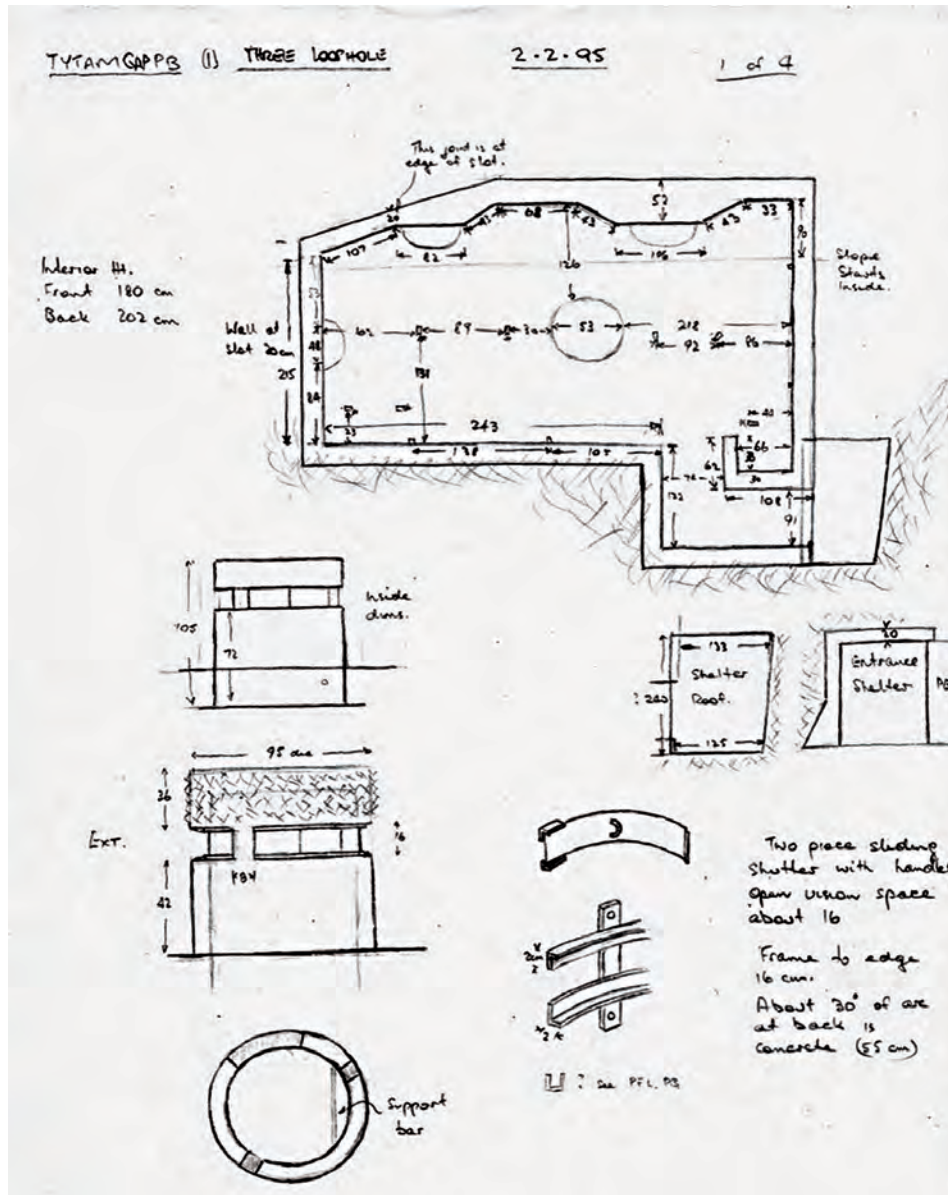 TYTAM GAP PB (1) THREE LOOPHOLE 2-2-95 1 of 4
This joint is at
edge of slot.
Interior Ht.
Front 180 cm
Back 202 cm
Wall at
slot 20cm
215
Slope
Starts
Inside.
107
82
43
68
43
106
43
33
52
126
53
102
89
30
53
218
92
86
48
84
131
23
243
138
105
40
66
62
30
132
108
91
Inside
dims.
105
72
133
Shelter
Roof.
240
125
20
Entrance
Shelter
95 dia
36
EXT.
16
42
Two piece sliding
Shutter with handle
Open vision space
about 16
Frame to edge
16 cm.
About 30° of arc
at back is
concrete (55 cm)
2cm
2
? See PFL. PB
Support
bar